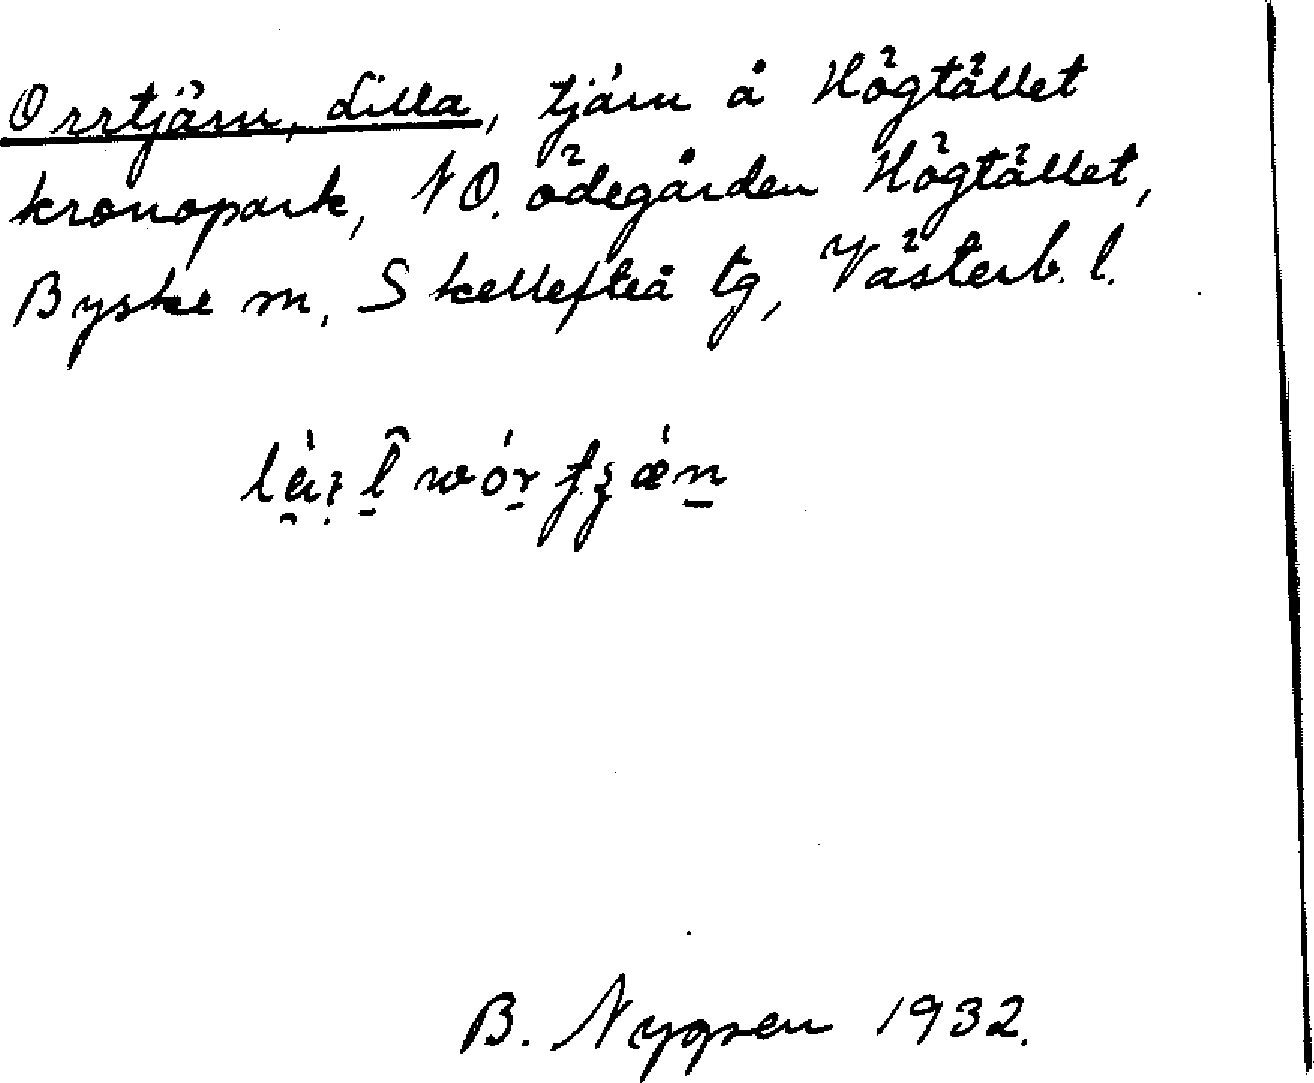 Orrtjärn, Lilla, tjärn å Högtället
kronopark, NO. ödegården Högtället,
Byske sn, Skellefteå tg, Västerb. l.
B. Nygren 1932.